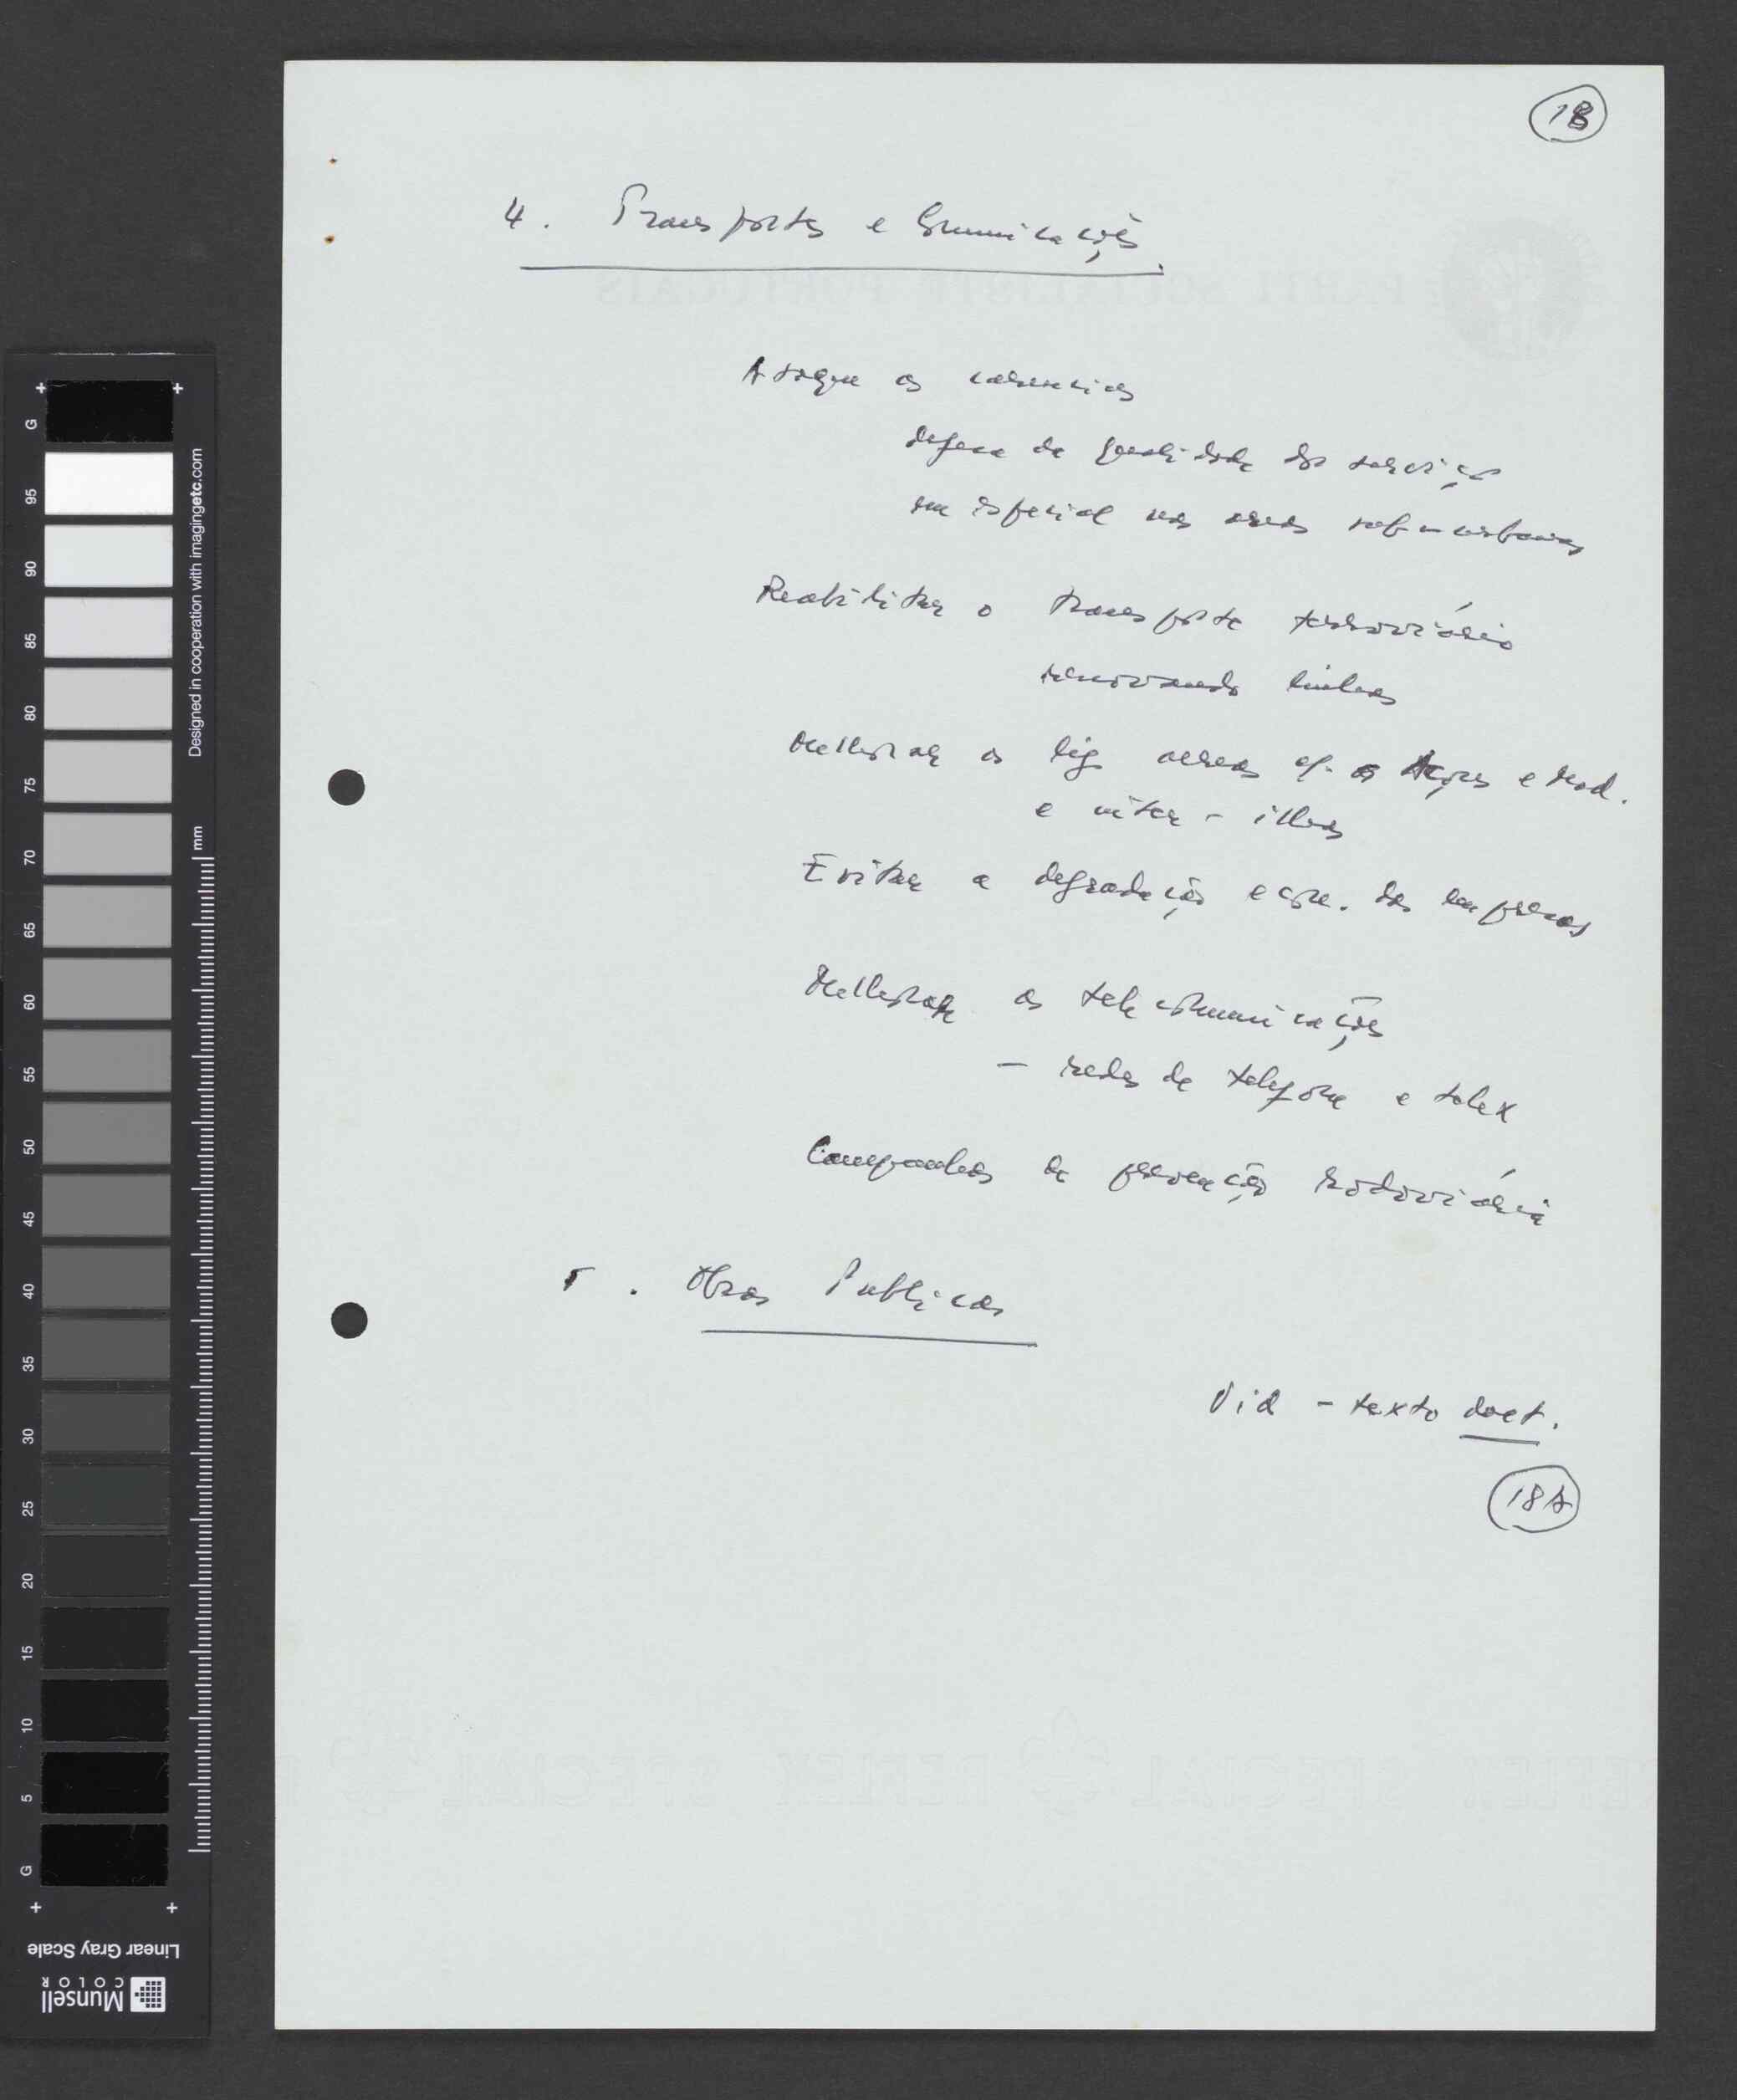 18
4. Transportes e Comunicações.
PARTI SOCIALISTE PORTUGAIS
Ataque as carencias
defesa da qualidade dos serviços
em especial nas areas sub-urbanas
Reabilitar o transporte ferroviário
renovando linhas
Melhorar as lig. aereas c/. os Açores e Mad.
e inter-ilhas
Evitar a degradação econ. das empresas
Melhorar as telecomunicações
— redes de telefone e telex
Campanhas de prevenção rodoviária
5. Obras Publicas
Vid - texto dact.
18A
REFLEX SPECIAL REFLEX SPECIAL
G 95 90 85 80 75 70 65 60 55 50 45 40 35 30 25 20 15 10 5 G
Designed in cooperation with imagingetc.com
mm
Linear Gray Scale
Munsell
COLOR